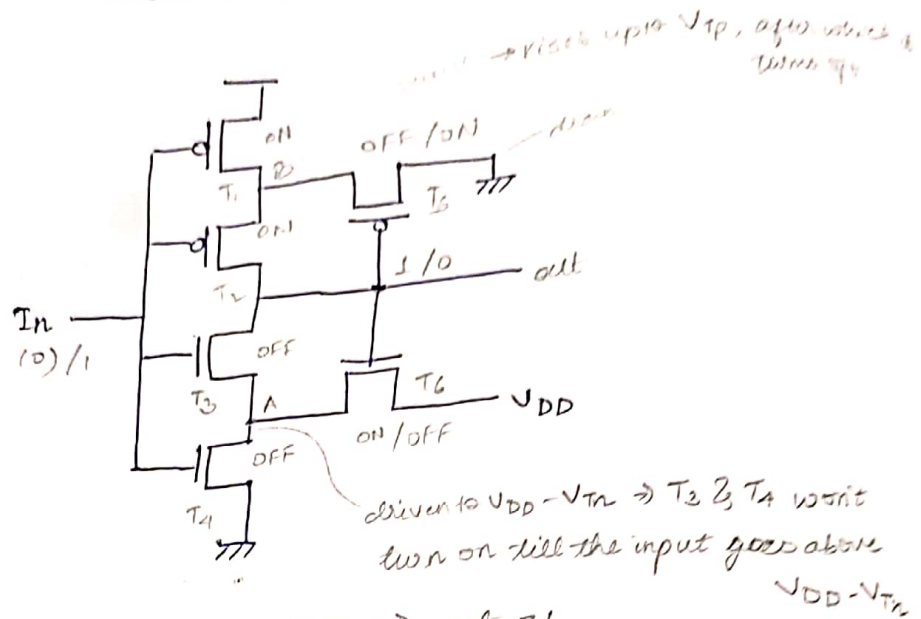 → rises upto VTp, after
ON
OFF/ON
T1
B
T5
ON
1/0
out
T2
In
(0)/1
OFF
T3
A
T6
VDD
ON/OFF
OFF
T4
driven to VDD-VTn ⇒ T3 & T4 won't
turn on till the input goes above
VDD-VTn